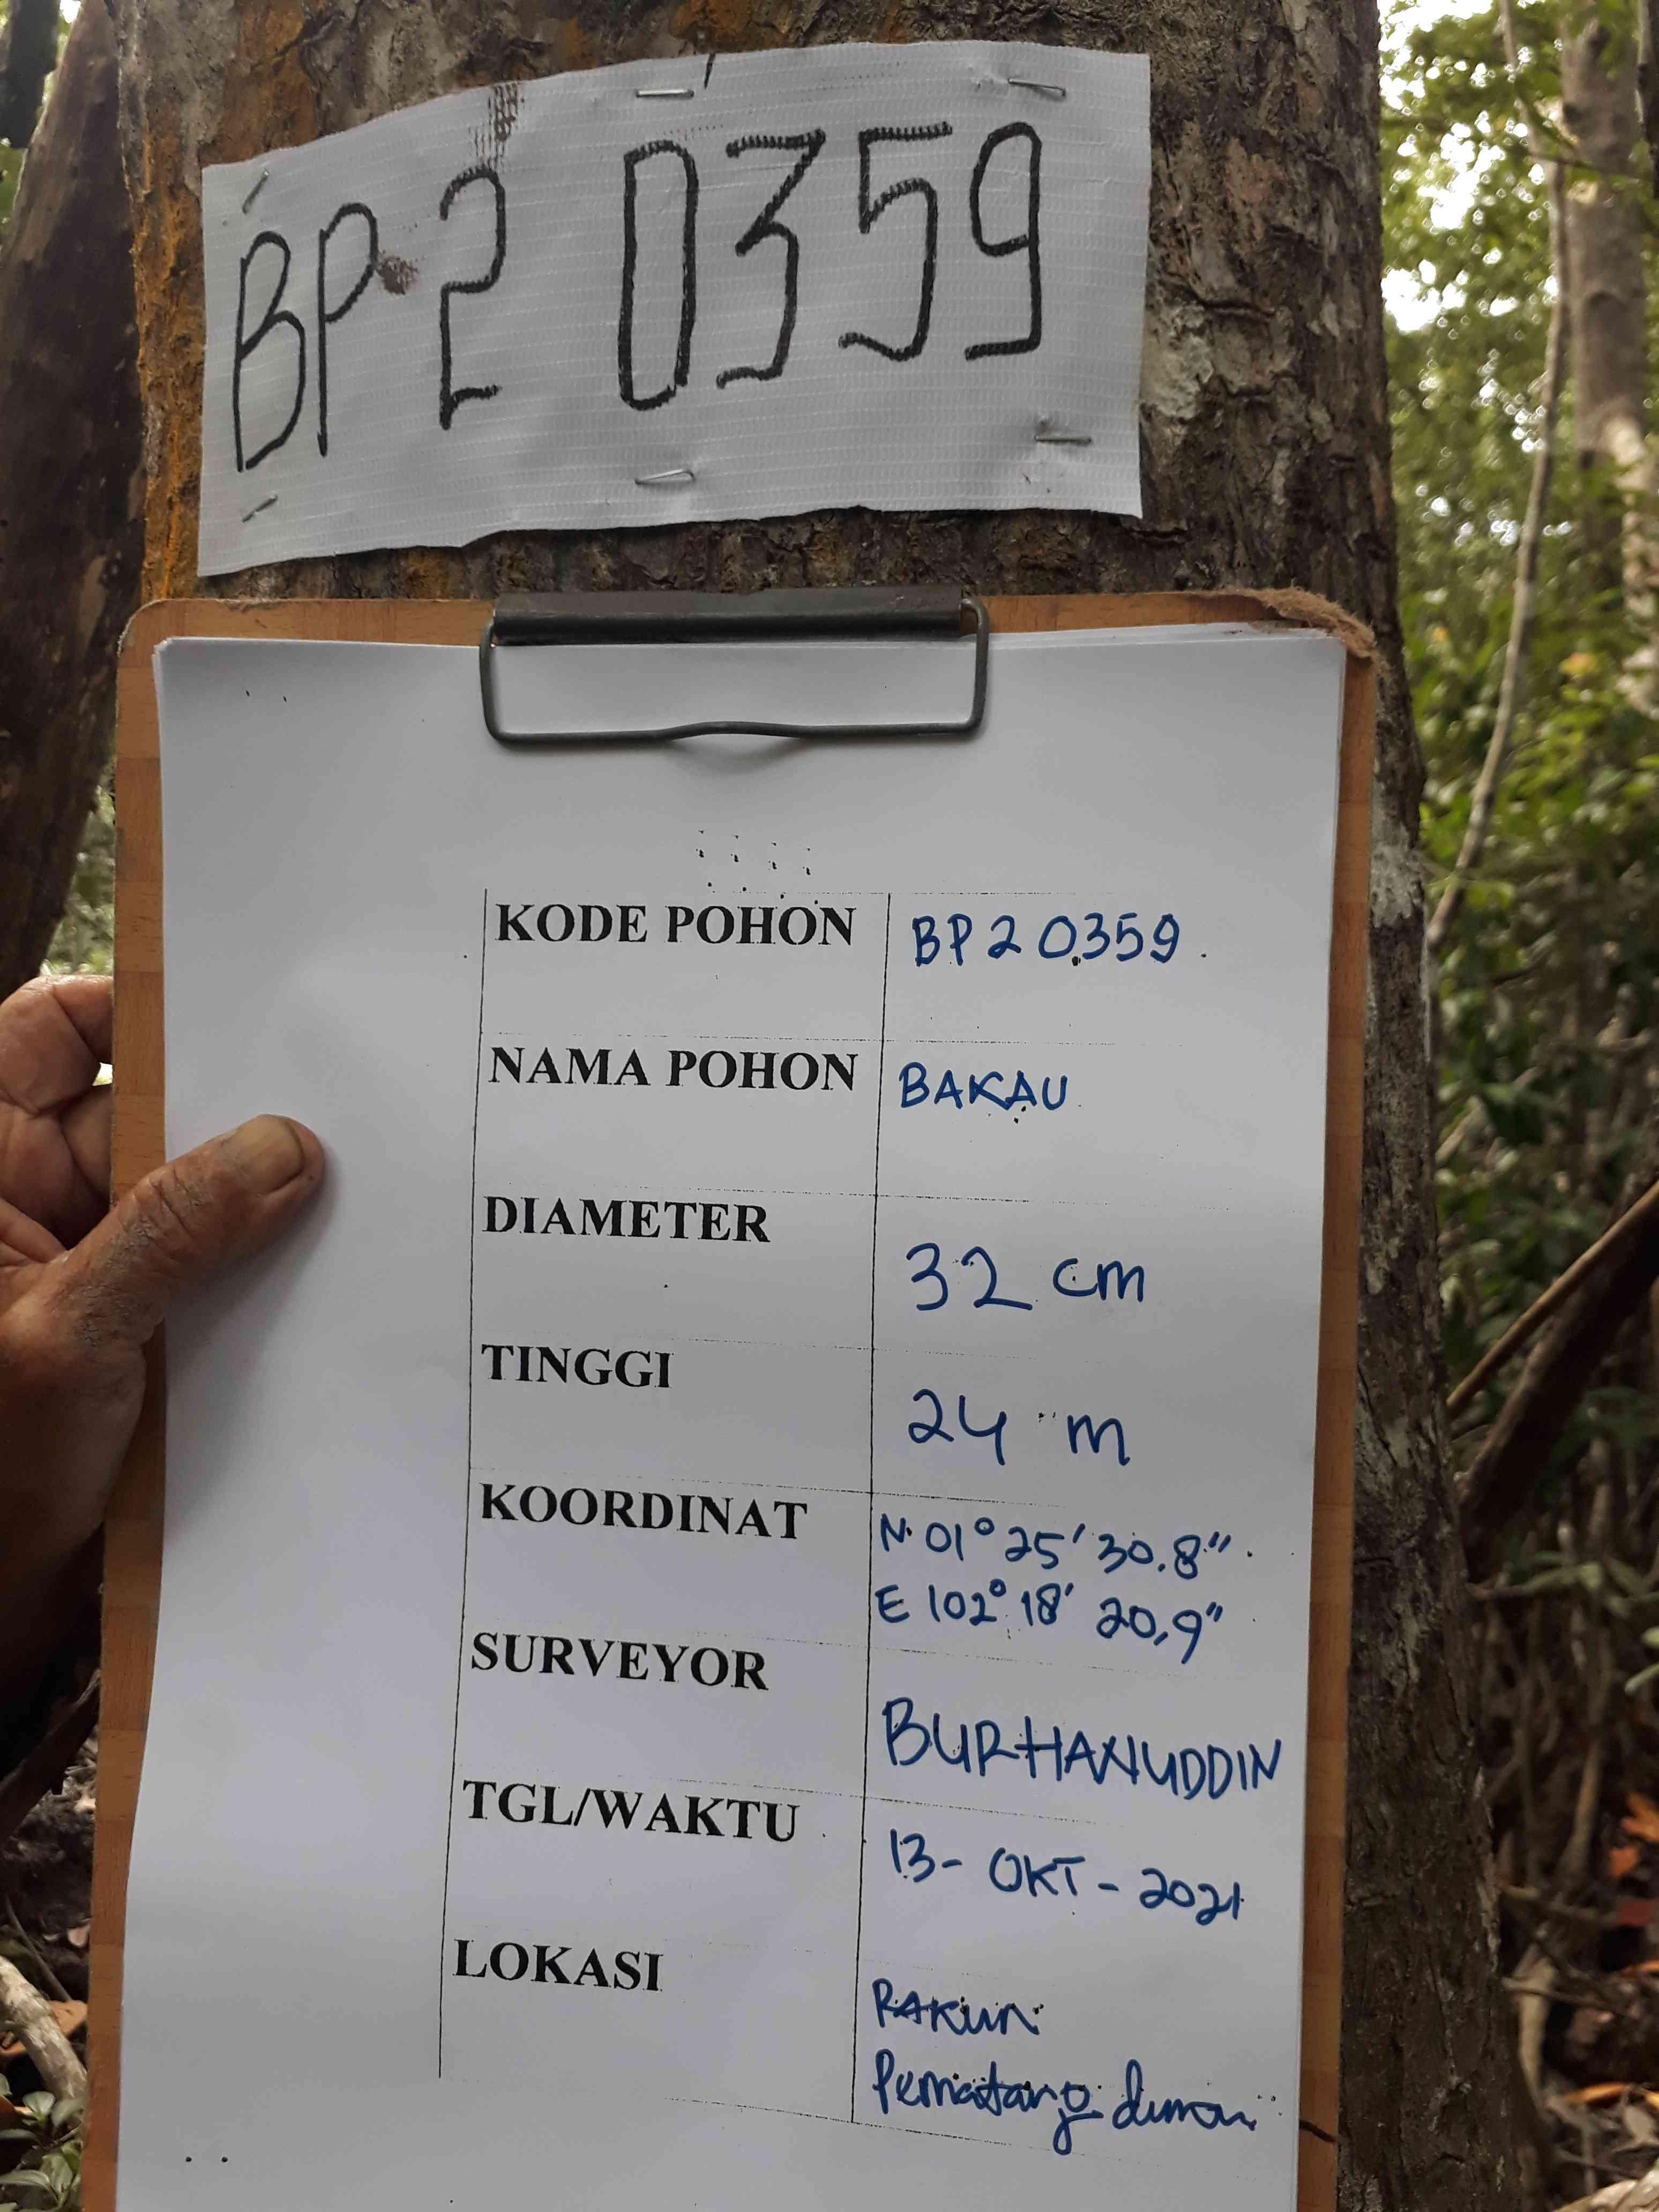 BP 2 0359
KODE POHON BP 2 0359
NAMA POHON BAKAU
DIAMETER 32 cm
TINGGI 24 m
KOORDINAT N 01° 25' 30.8"
E 102° 18' 20,9"
SURVEYOR BURHANUDDIN
TGL/WAKTU 13 - OKT - 2021
LOKASI RAKUN
Pematang